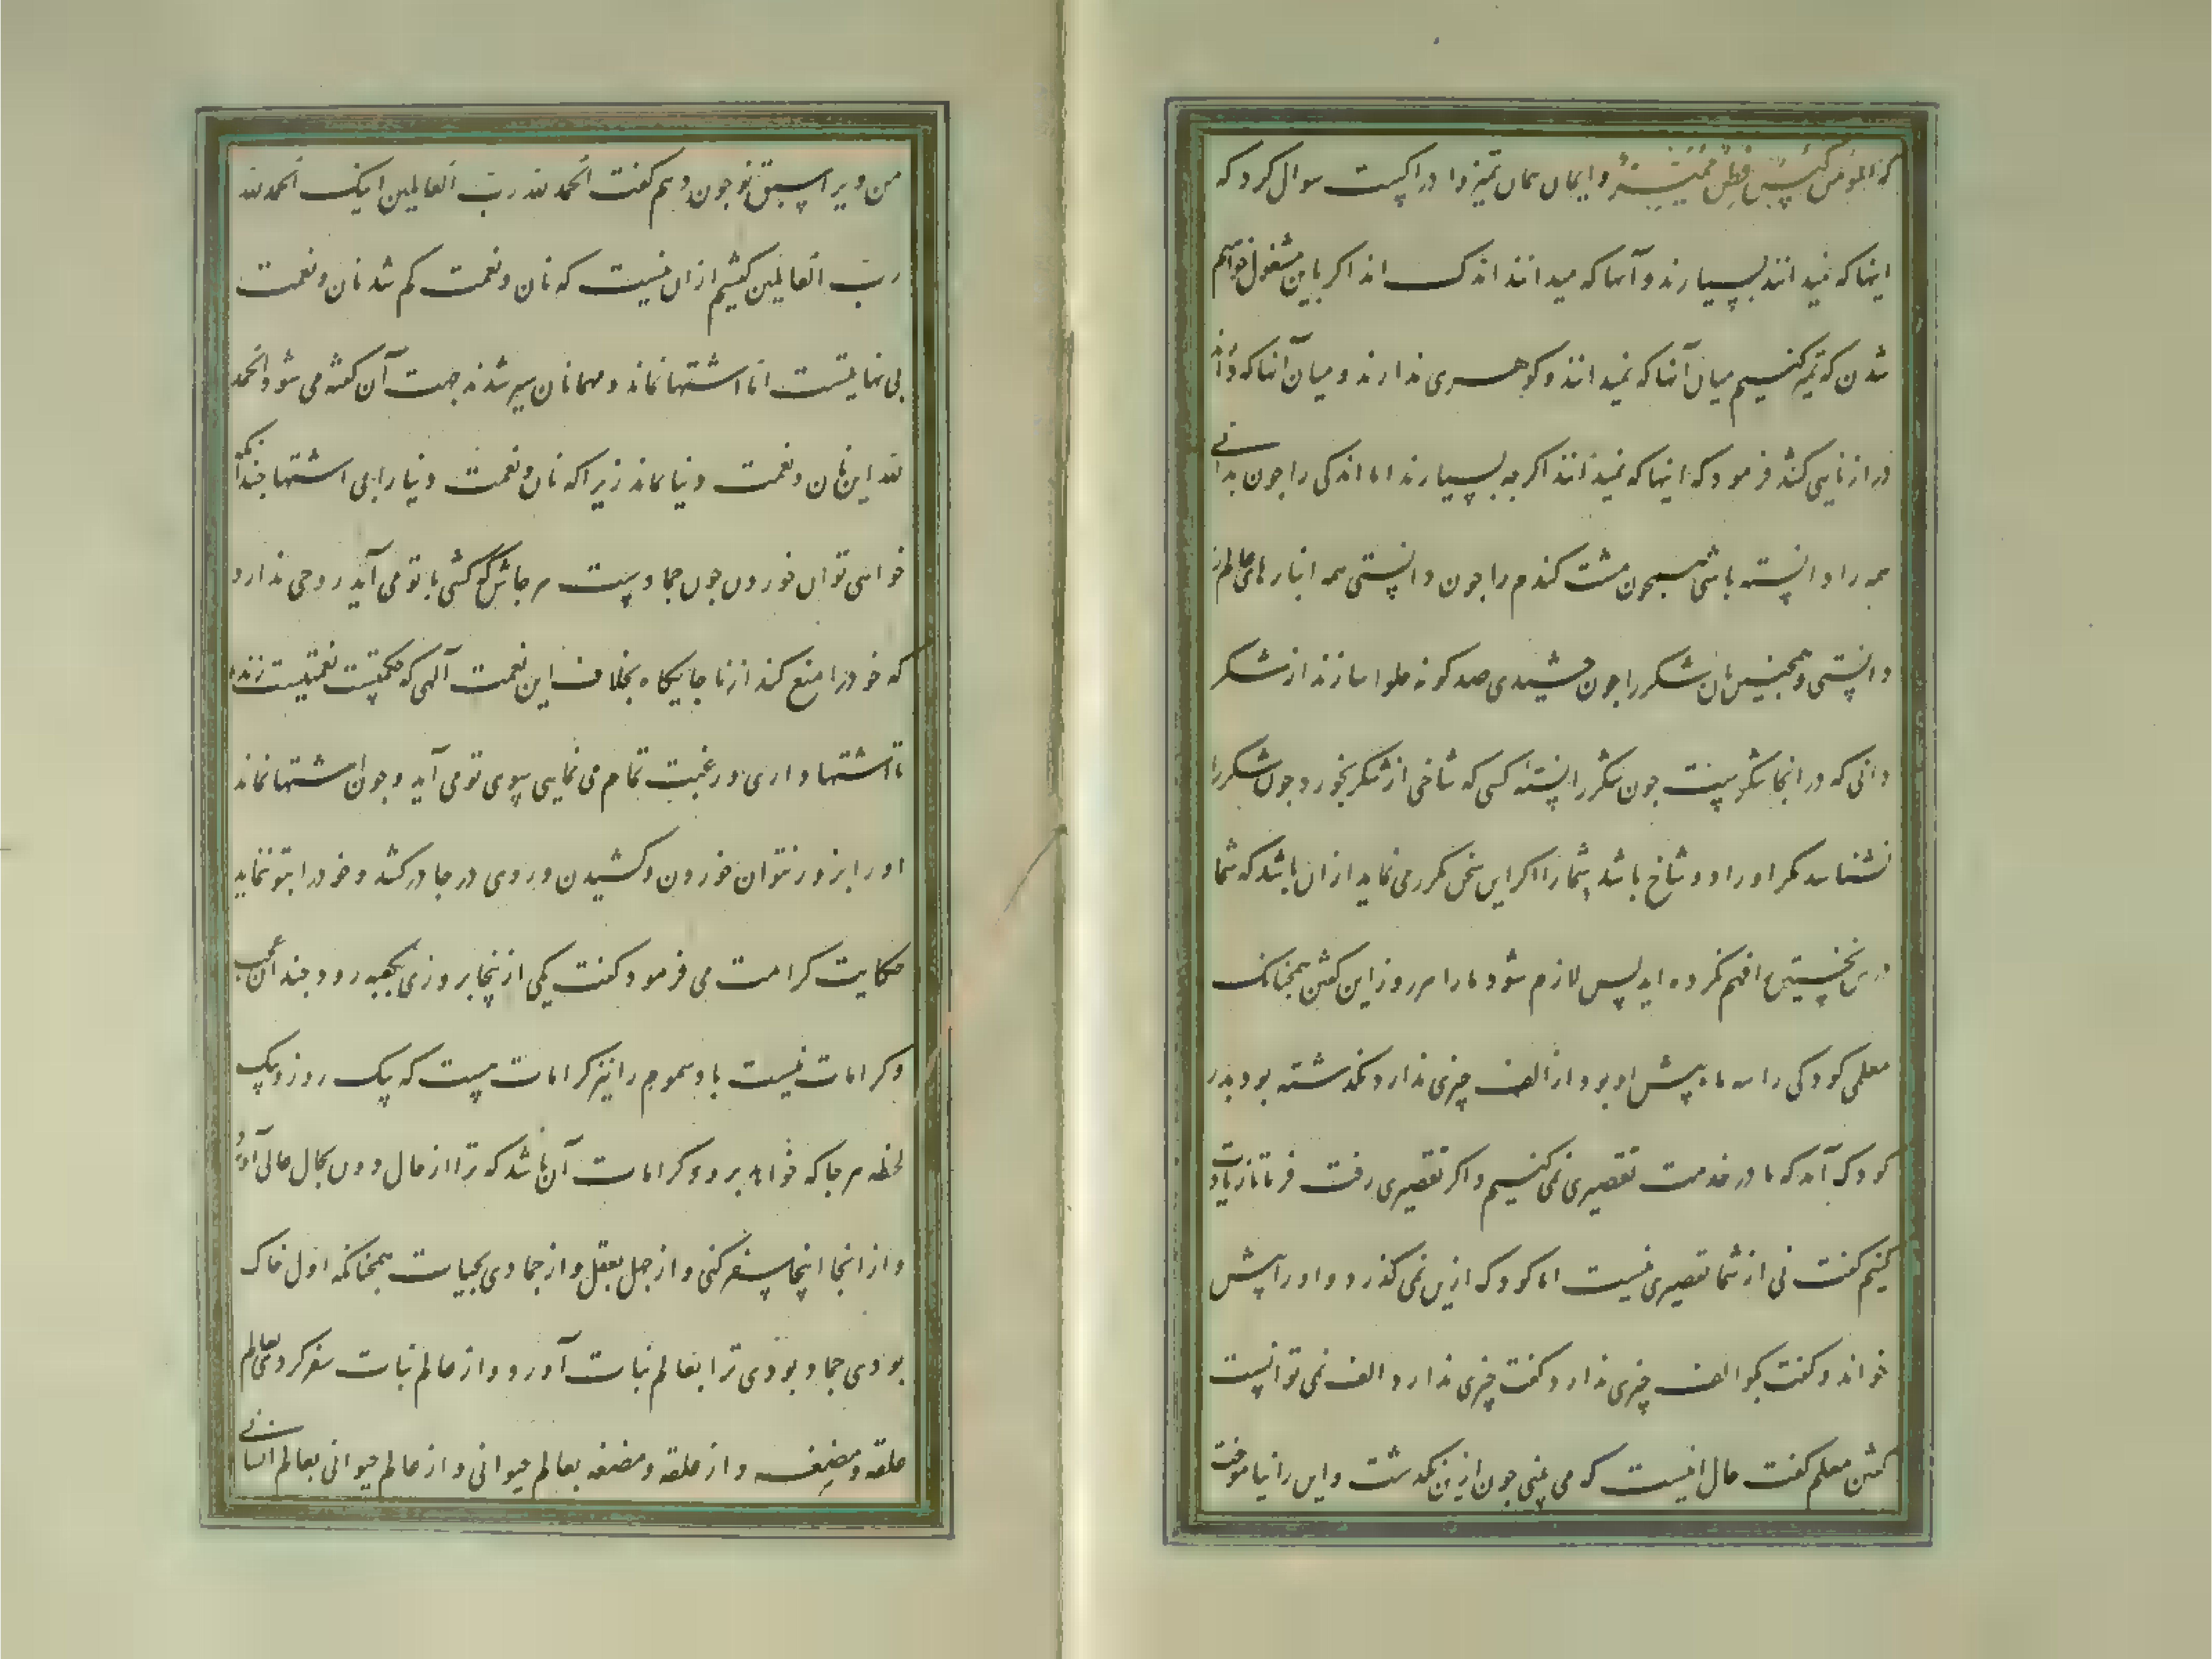 که المؤمن کیس فطن ممیز و ایمان همان تمیز و ادراکست سوال کرد که
اینها که نمیدانند بسیارند و آنها که میدانند اندک اند اکر باین مشغول خواهیم
شدن که تمیز کنیم میان آنها که نمیدانند و کوهری ندارند و میان آنها که دارند
درازنایی کشد فرمود که اینها که نمیدانند اکرچه بسیارند اما اندکی را چون بدانی
همه را دانسته باشی همچون مشت کندم را چون دانستی همه انبارهای عالم را
دانستی و همچنین پان شکر را چون چشیدی صد کونه حلوا سازند از شکر
دانی که در انجا شکرست چون شکر را دانسته کسی که شاخی از شکر بخورد چون شکر را
نشناسد مکر او را دو شاخ باشد شما را اکر این سخن مکرر می نماید ازان باشد که شما
درس نخستین را فهم نکرده اید پس لازم شود ما را هر روز این کفتن همچنانک
معلمی کودکی را سه ماه پیش او بود از الف چیزی ندارد نکذشته بود پدر
کودک آمد که ما در خدمت تقصیری نمی کنیم و اکر تقصیری رفت فرما تا زیادت
کنیم کفت نی از شما تقصیری نیست اما کودک ازین نمی کذرد و او را پیش
خواند و کفت بکو الف چیزی ندارد کفت چیزی ندارد الف نمی توانست
کفتن معلم کفت حال اینست که می بینی چون ازین نکذشت و این را نیاموخت
من ویرا سبق نو چون دهم کفت الحمد لله رب العالمین اینک الحمد لله
رب العالمین کفتیم ازان نیست که نان و نعمت کم شد نان و نعمت
بی نهایتست اما اشتها نماند و مهمانان سیر شدند جهت آن کفته می شود الحمد
لله این نان و نعمت دنیا نماند زیرا که نان و نعمت دنیا را بی اشتها چندانکه
خواهی توان خوردن چون جمادیست هر جاش که کشی با تو می آید روحی ندارد
که خود را منع کند از ناجایکاه بخلاف این نعمت آلهی که حکمتیست نعمتیست زنده
تا اشتها داری و رغبت تمام می نمایی سوی تو می آید و چون اشتها نماند
او را بزور نتوان خوردن و کشیدن و روی در چادر کشد و خود را بتو ننماید
حکایت کرامت می فرمود کفت یکی از ینجا بروزی بکعبه رود چندان عجب
و کرامات نیست باد سموم را نیز کرامات هست که بیک روز و یک
لحظه هر جا که خواهد برود کرامات آن باشد که ترا از حال دون بحال عالی آورد
و از انجا اینجا سفر کنی و از جهل بعقل و از جمادی بحیات همچنانکه اول خاک
بودی جماد بودی ترا بعالم نبات آورد و از عالم نبات سفر کردی بعالم
علقه و مضغه و از علقه و مضغه بعالم حیوانی و از عالم حیوانی بعالم انسانی